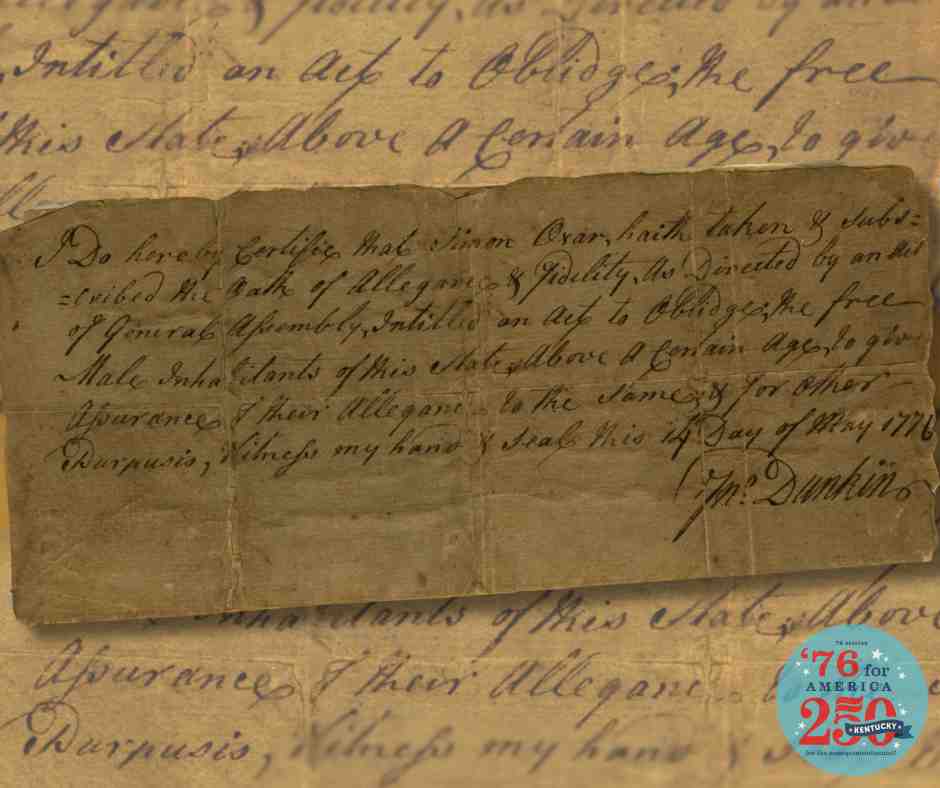 Intitled an Act to Oblidge, the free
this State, Above A Certain Age, to giv
I Do hereby Certifie that Simon Oxar, haith taken & Subs=
=cribed the Oath of Allegance & Fidelity, As Directed by an Act
of General Assembly, Intitled an Act to Oblidge, the free
Male Inhabitants of this State, Above A Certain Age, to giv
Assurance of their Allegance to the Same, & for other
Purpusis, Witness my hand & Seal this 14 Day of May 1776
Jno. Dunkin
Inhabitants of this State, Above
Assurance of their Allegane
Purpusis, Witness my hand &
'76 for
AMERICA
250
KENTUCKY